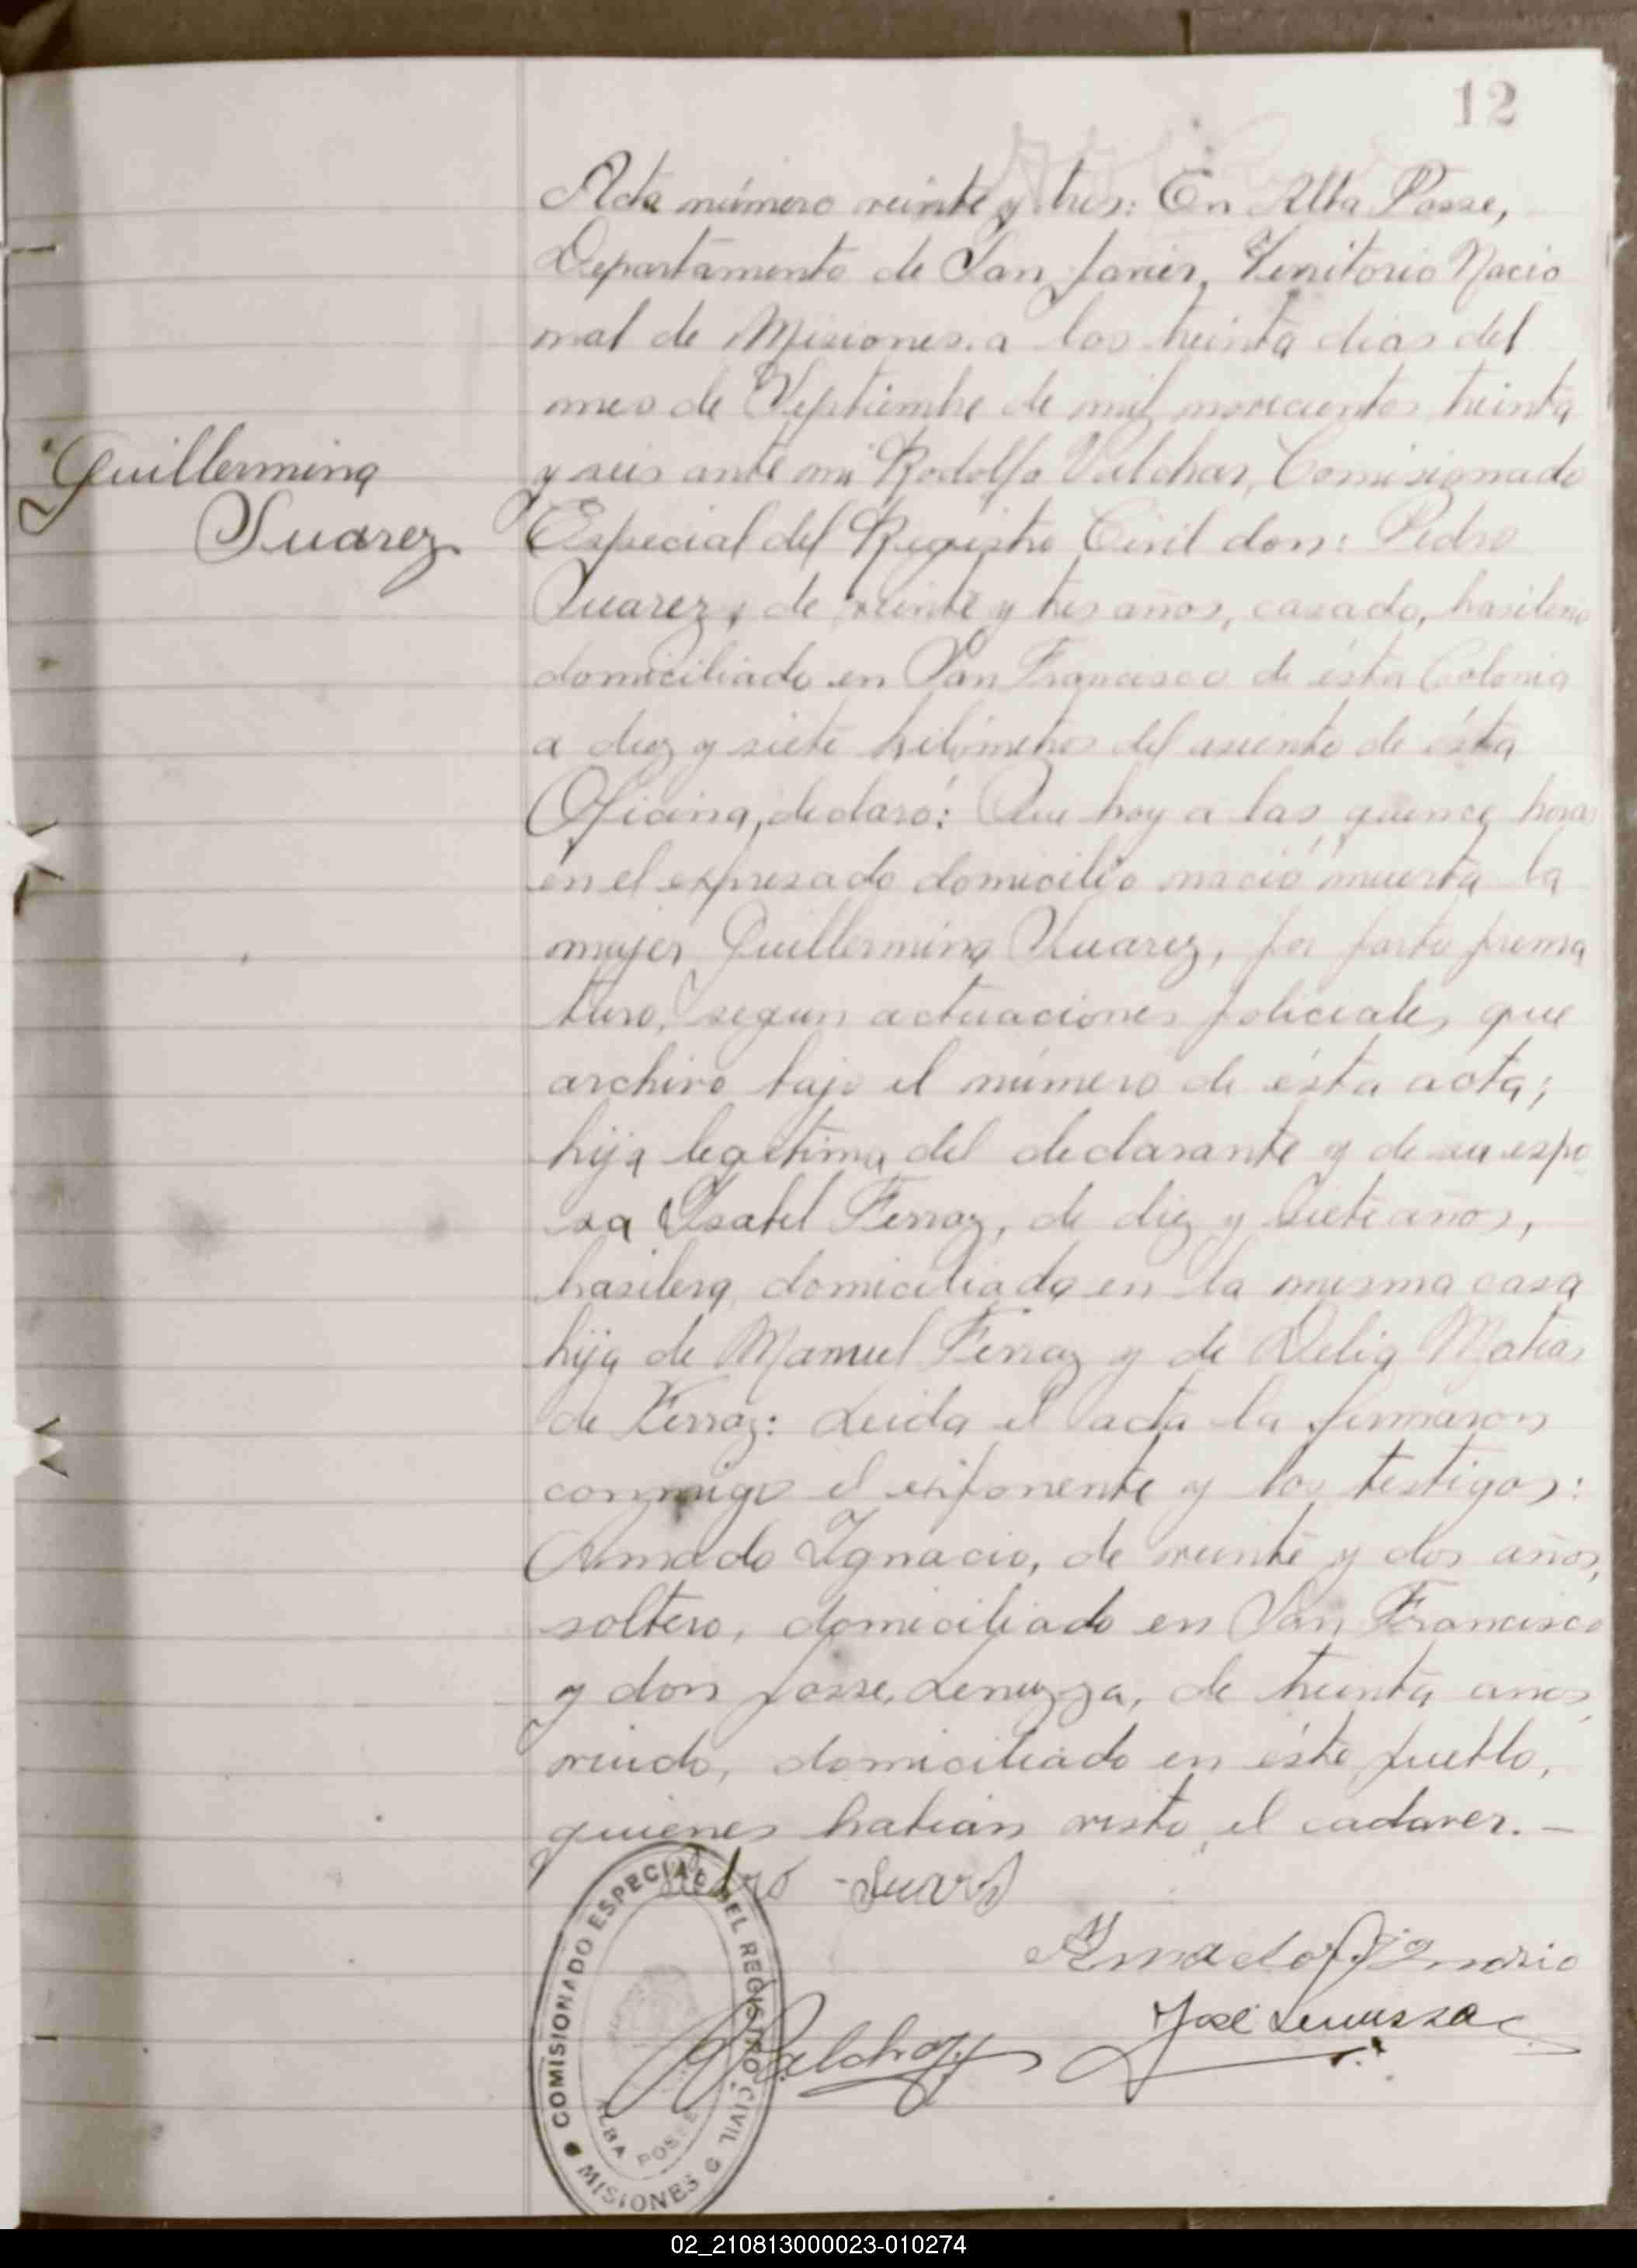 12
Acta número veinte y tres: En Alba Posse,
Departamento de San Javier, Territorio Nacio
nal de Misiones. a los treinta dias del
mes de Septiembre de mil novecientos treinta
Guillermina
y seis ante mi Rodolfo Valchar, Comisionado
Suarez
Especial del Registro Civil don: Pedro
Suarez, de veinte y tres años, casado, brasilero
domiciliado en San Francisco de ésta Colonia
a diez y siete kilómetros del asiento de ésta
Oficina, declaró: Que hoy a las quince horas
en el expresado domicilio nació muerta la
mujer Guillermina Suarez, por parto prema
turo, segun actuaciones policiales que
archivo bajo el número de ésta acta;
hija legitima del declarante y de su espo
sa Isabel Ferraz, de diez y siete años,
brasilera domiciliada en la misma casa
hija de Manuel Ferraz y de Delia Matias
de Ferraz: Leida el acta la firmaron
conmigo el exponente y los testigos:
Amado Ignacio, de veinte y dos años,
soltero, domiciliado en San Francisco
y don Josse Lenuzza, de treinta anos
viudo, domiciliado en éste pueblo,
quienes habian visto el cadaver. —
Pedro Suares
Amado Ignasio
José Lenussa
COMISIONADO ESPECIAL DEL REGISTRO CIVIL
ALBA POSSE
MISIONES
02_210813000023-010274